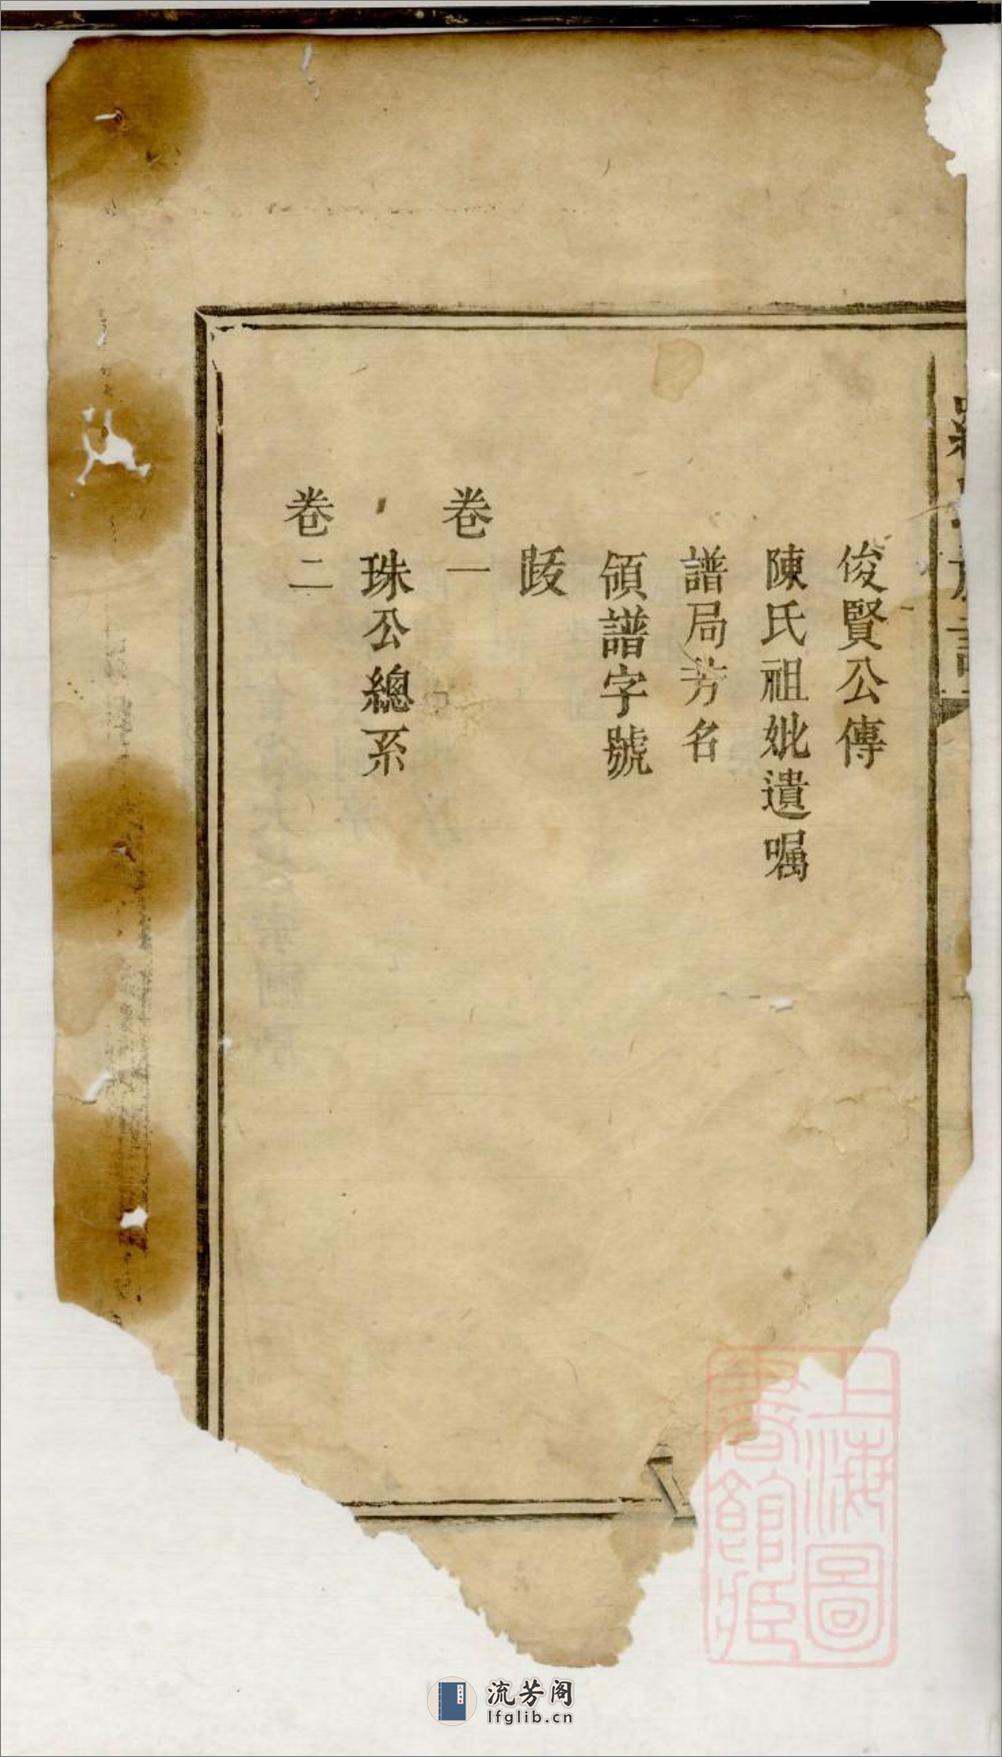 俊賢公傳
陳氏祖妣遺囑
譜局芳名
領譜字號
跋
卷一
珠公總系
卷二
上海圖
書館藏
流芳阁
lfglib.cn